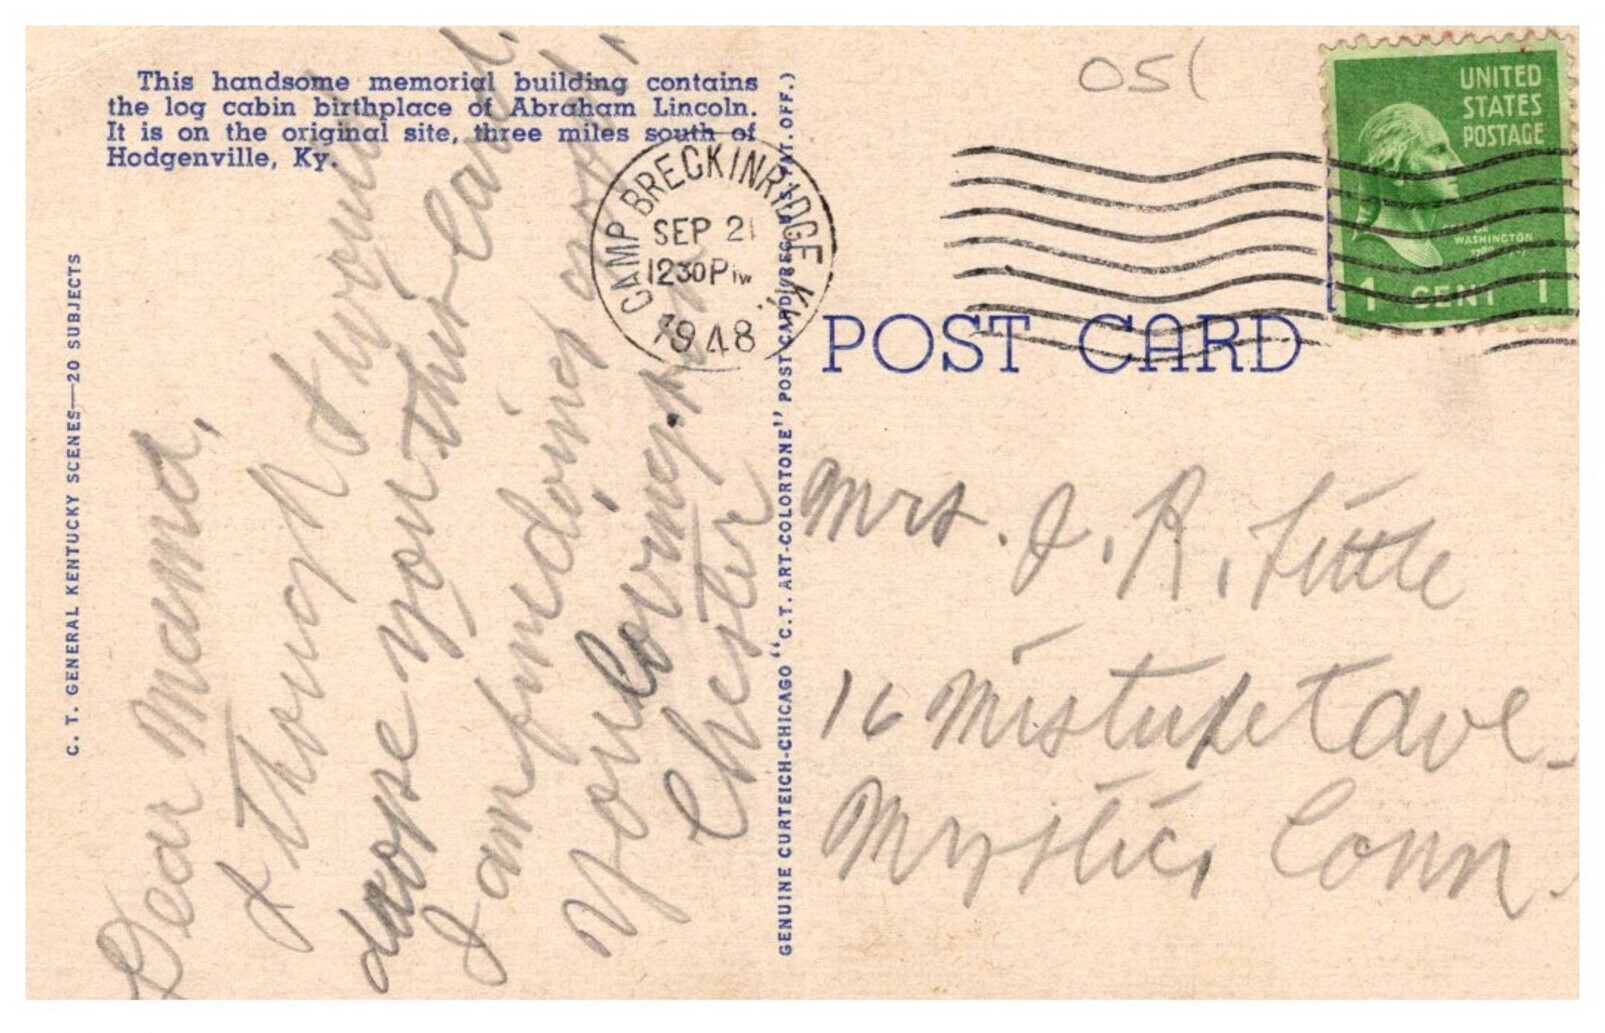 This handsome memorial building contains
the log cabin birthplace of Abraham Lincoln.
It is on the original site, three miles south of
Hodgenville, Ky.
C. T. GENERAL KENTUCKY SCENES—20 SUBJECTS
Dear Mama,
I thought I would
drope you this Card.
I am fine doing
Your Loving
Chester
GENUINE CURTEICH-CHICAGO "C. T. ART-COLORTONE" POST CARD (REG. U. S. PAT. OFF.)
CAMP BRECKINRIDGE, KY.
SEP 21
1230 PM
1948
051
UNITED
STATES
POSTAGE
WASHINGTON
1 CENT 1
POST CARD
Mrs. J. R. Little
16 Mistuxet Ave.
Mystic, Conn.